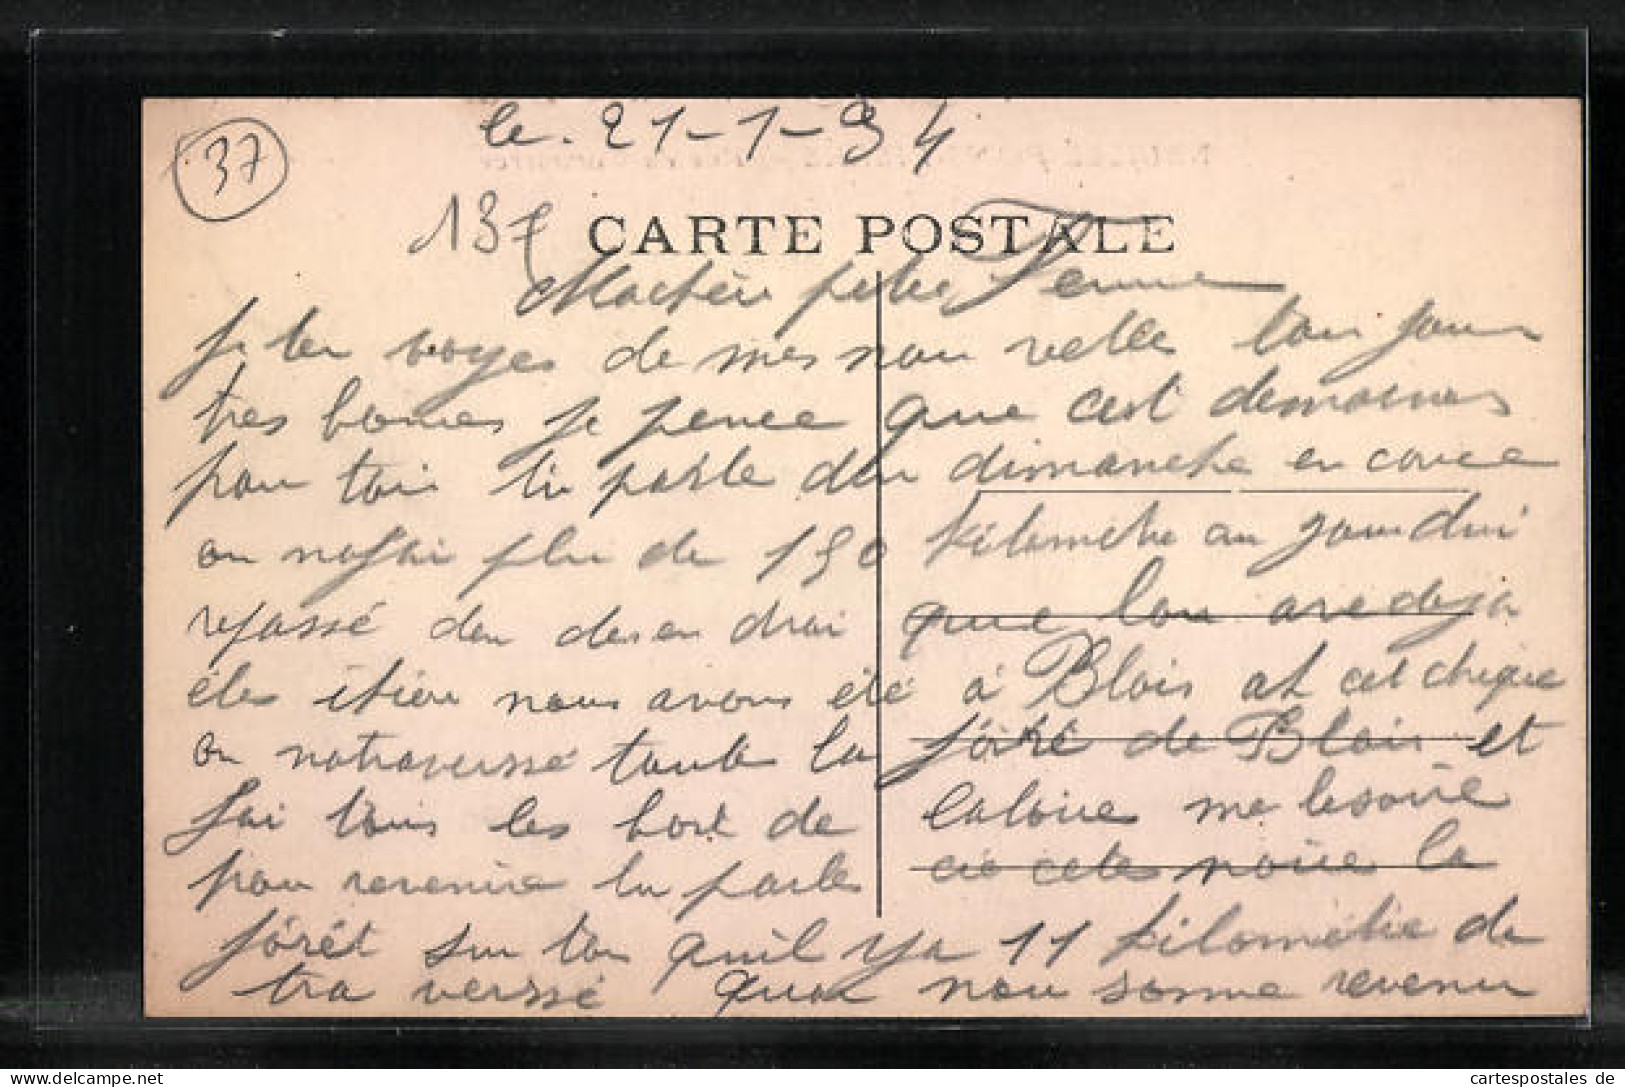 le. 21-1-34
37
CARTE POSTALE
Ma chère petite Femme
Je ten voyes de mes nou velles tou jour
tres bonnes je pence que cest de
pour toi tu parle du dimanche en cource
on na fai plu de 150 kilometre au jourdui
repassé dan des en droi que lon are deja
étes itiou nous avons été à Blois at cet
on natraversse toute la fôiré de Blois et
fai tous les bort de la loire me le soire
pour revenire tu parle cete noire la
fôrét sur tou quil ya 11 kilométre de
tra versse quan nou somme revenu
cartespostales de